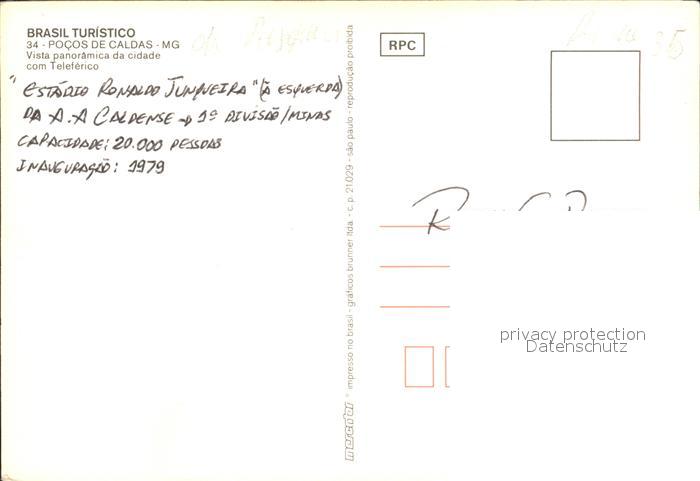 BRASIL TURÍSTICO
34 - POÇOS DE CALDAS - MG
Vista panorâmica da cidade
com Teleférico
"ESTÁDIO RONALDO JUNQUEIRA" (À ESQUERDA)
DA A.A CALDENSE → 1ª DIVISÃO/MINAS
CAPACIDADE: 20.000 PESSOAS
INAUGURAÇÃO: 1979
mercator ® impresso no brasil - gráficos brunner ltda. - c.p. 21.029 - são paulo - reprodução proibida
RPC
35
privacy protection
Datenschutz